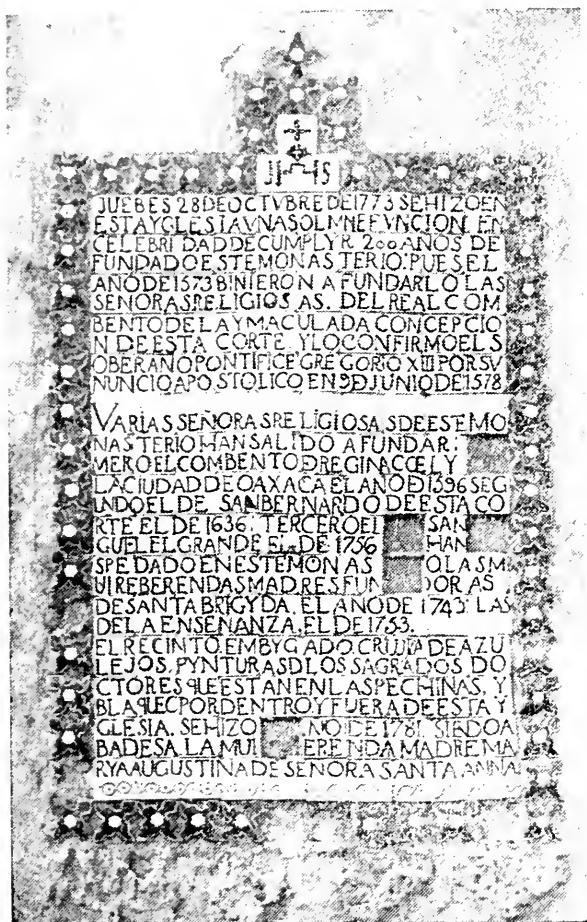 JHS
JUEBES 28 DE OCTVBRE DE 1773 SE HIZO EN
ESTA YGLESIA VNA SOLMNE FVNCION EN
CELEBRIDAD DE CUMPLYR 200 AÑOS DE
FUNDADO ESTE MONASTERIO: PUES EL
AÑO DE 1573 BINIERON A FUNDARLO LAS
SEÑORAS RELIGIOSAS. DEL REAL COM
BENTO DE LA YMACULADA CONCEPCIO
N DE ESTA CORTE. Y LO CONFIRMO EL S
OBERANO PONTIFICE GREGORIO XIII POR SV
NUNCIO APOSTOLICO EN 9 D JUNIO DE 1578
VARIAS SEÑORAS RELIGIOSAS DE ESTE MO
NASTERIO HAN SALIDO A FUNDAR:
MERO EL COMBENTO D REGINA CŒLY
LA CIUDAD DE OAXACA EL AÑO D 1596 SEG
UNDO EL DE SAN BERNARDO DE ESTA CO
RTE EL DE 1636: TERCERO EL SAN
GUEL EL GRANDE EL DE 1756 HAN
SPEDADO EN ESTE MONAS O LAS M
UI REBERENDAS MADRES FUN DORAS
DE SANTA BRIGYDA. EL AÑO DE 1743 LAS
DE LA ENSEÑANZA. EL DE 1753.
EL RECINTO, EMBYGADO, CRUJIA DE AZU
LEJOS, PYNTURAS D LOS SAGRADOS DO
CTORES QUE ESTAN EN LAS PECHINAS, Y
BLAQUEC POR DENTRO Y FUERA DE ESTA Y
GLESIA. SE HIZO NO DE 1781. SIEDO A
BADESA LA MUI ERENDA MADRE MA
RYA AUGUSTINA DE SEÑORA SANTA ANNA